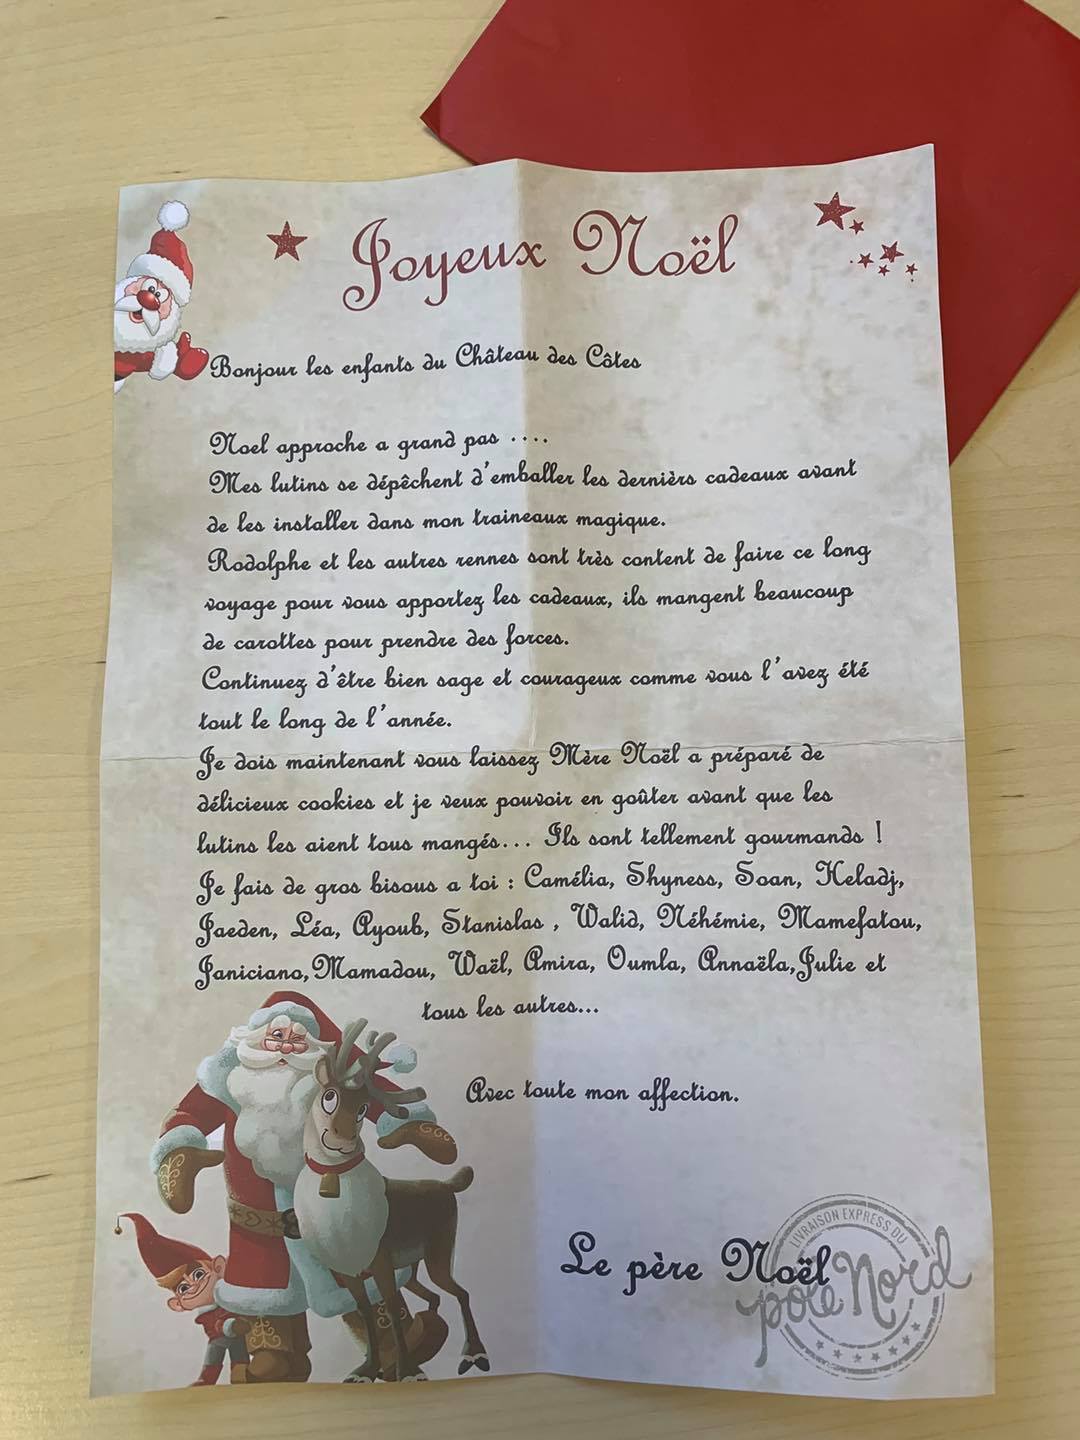 Joyeux Noël
Bonjour les enfants du Château des Côtes
Noel approche a grand pas ....
Mes lutins se dépêchent d'emballer les dernièrs cadeaux avant
de les installer dans mon traineaux magique.
Rodolphe et les autres rennes sont très content de faire ce long
voyage pour vous apportez les cadeaux, ils mangent beaucoup
de carottes pour prendre des forces.
Continuez d'être bien sage et courageux comme vous l'avez été
tout le long de l'année.
Je dois maintenant vous laissez Mère Noël a préparé de
délicieux cookies et je veux pouvoir en goûter avant que les
lutins les aient tous mangés... Ils sont tellement gourmands !
Je fais de gros bisous a toi : Camélia, Shyness, Soan, Keladj,
Jaeden, Léa, Ayoub, Stanislas , Walid, Néhémie, Mamefatou,
Janiciano,Mamadou, Waël, Amira, Oumla, Annaëla,Julie et
tous les autres...
Avec toute mon affection.
Le père Noël
LIVRAISON EXPRESS DU
pôle Nord